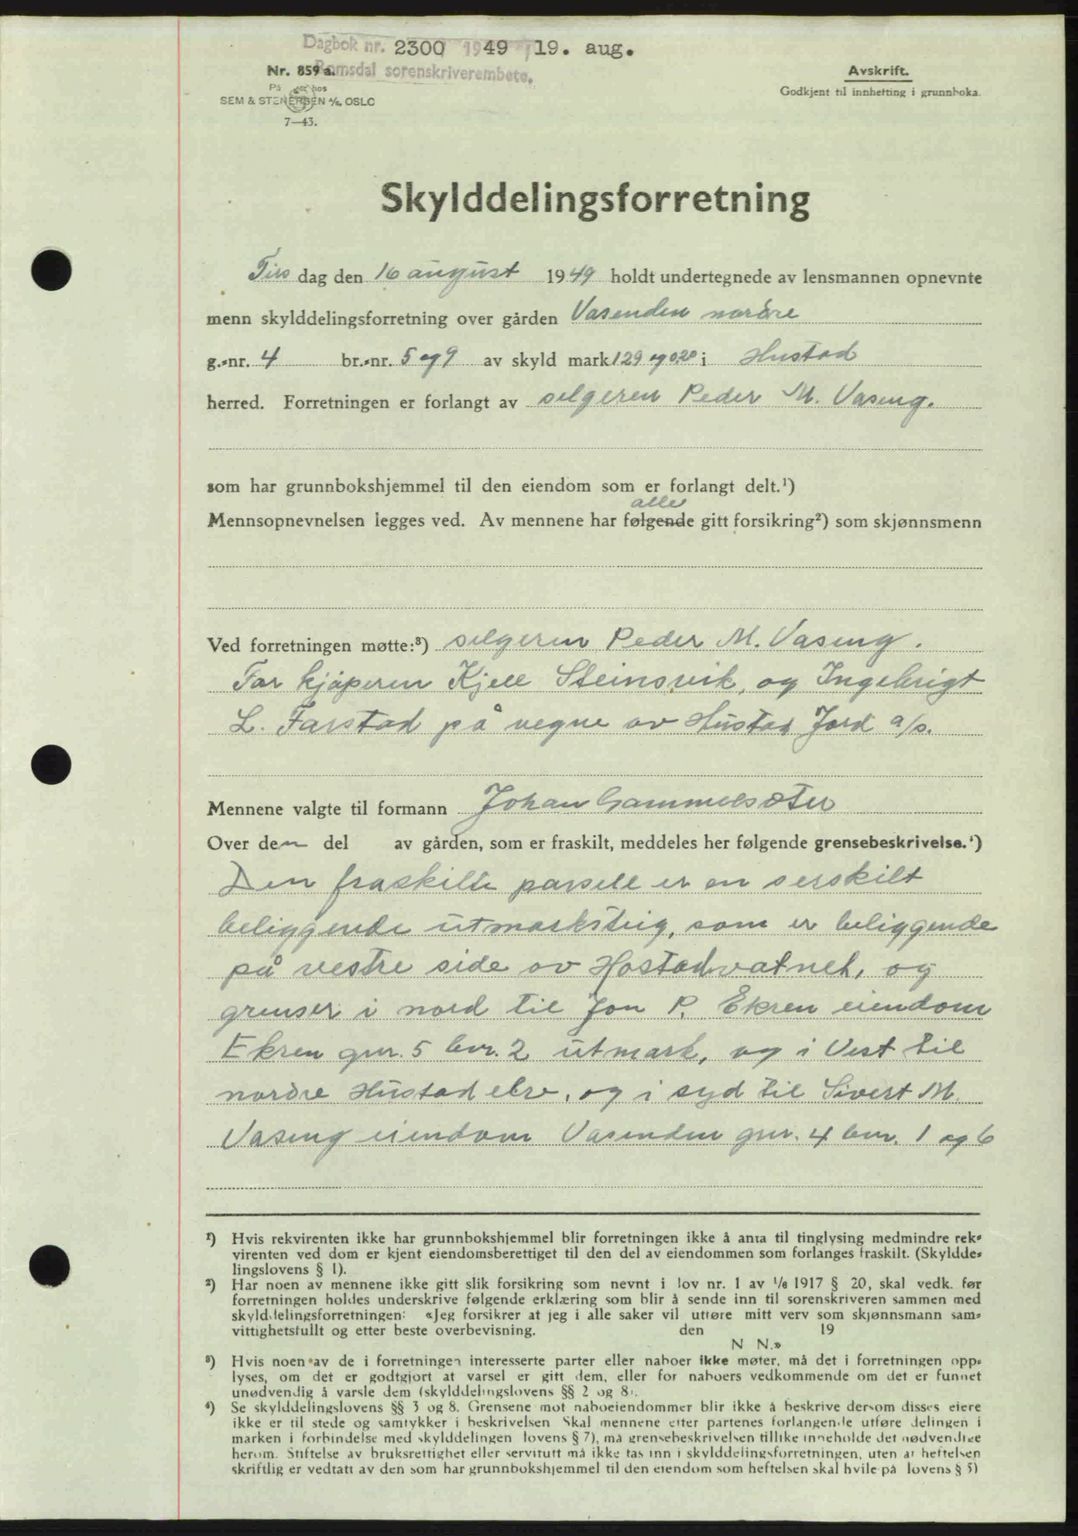 Dagbok nr. 2300 1949 19. aug.
Romsdal sorenskriverembete.
Nr. 859 a.
På hos
SEM & STENERSEN A/S, OSLO
7—43.
Avskrift.
Godkjent til innhefting i grunnboka.
Skylddelingsforretning
Tirs dag den 16 august 1949 holdt undertegnede av lensmannen opnevnte
menn skylddelingsforretning over gården Vasenden nordre
g.-nr. 4 br.-nr. 5 og 9 av skyld mark 1.29 og 0.20 i Hustad
herred. Forretningen er forlangt av selgeren Peder M. Vaseng.
som har grunnbokshjemmel til den eiendom som er forlangt delt.¹)
alle
Mennsopnevnelsen legges ved. Av mennene har følgende gitt forsikring²) som skjønnsmenn
Ved forretningen møtte:³) selgeren Peder M. Vaseng.
For kjøperen Kjell Steinsvik, og Ingebrigt
L. Farstad på vegne av Hustad Jord a/s.
Mennene valgte til formann Johan Gammelsæter
Over den del av gården, som er fraskilt, meddeles her følgende grensebeskrivelse.⁴)
Den fraskilte parsell er en serskilt
beliggende utmarksteig, som er beliggende
på vestre side av Hostadvatnet, og
grenser i nord til Jon P. Ekren eiendom
Ekren gnr. 5 bnr. 2 utmark, og i Vest til
nordre Hustad elve, og i syd til Sivert M.
Vaseng eiendom Vasenden gnr. 4 bnr. 1 og 6
¹) Hvis rekvirenten ikke har grunnbokshjemmel blir forretningen ikke å anta til tinglysing medmindre rek-
virenten ved dom er kjent eiendomsberettiget til den del av eiendommen som forlanges fraskilt. (Skyldde-
lingslovens § 1).
²) Har noen av mennene ikke gitt slik forsikring som nevnt i lov nr. 1 av 1/6 1917 § 20, skal vedk. før
forretningen holdes underskrive følgende erklæring som blir å sende inn til sorenskriveren sammen med
skylddelingsforretningen: «Jeg forsikrer at jeg i alle saker vil utføre mitt verv som skjønnsmann sam-
vittighetsfullt og etter beste overbevisning. den 19
N. N.»
³) Hvis noen av de i forretningen interesserte parter eller naboer ikke møter, må det i forretningen opp-
lyses, om det er godtgjort at varsel er gitt dem, eller for naboers vedkommende om det er funnet
unødvendig å varsle dem (skylddelingslovens §§ 2 og 8).
⁴) Se skylddelingslovens §§ 3 og 8. Grensene mot naboeiendommer blir ikke å beskrive dersom disses eiere
ikke er til stede og samtykker i beskrivelsen. Skal mennene etter partenes forlangende utføre delingen i
marken i forbindelse med skylddelingen (lovens § 7), må grensebeskrivelsen tillike inneholde det nødvendige
herom. Stiftelse av bruksrettighet eller servitutt må ikke tas inn i skylddelingsforretningen, uten at heftelsen
skriftlig er vedtatt av den som har grunnbokshjemmel til den eiendom som heftelsen skal hvile på (lovens § 5)